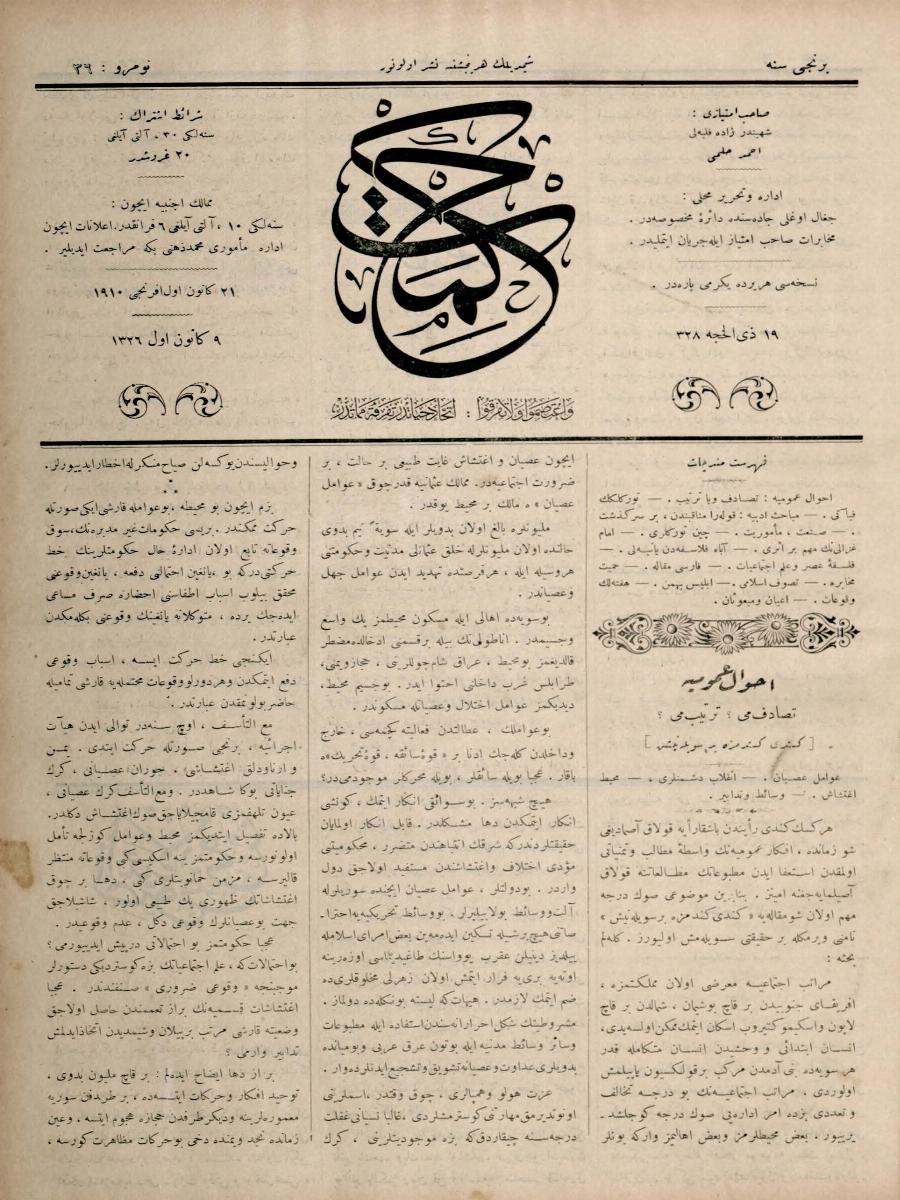 برنجی سنه
شمدیلك هر پنجشنبه نشر اولونور
نومرو : ٣٦
صاحب امتیازی :
شهبندر زاده فلبه‌لی
احمد حلمی
اداره و تحریر محلی :
جغال اوغلی جاده‌سنده دائرۀ مخصوصه‌در .
مخابرات صاحب امتیاز ایله جریان ایتملیدر .
نسخه‌سی هر یرده یكرمی پاره‌در .
١٩ ذی الحجه ٣٢٨
حكمت
واعتصموا ولا تفرقوا : اتحاد حیاتدر تفرقه مماتدر
شرائط اشتراك :
سنه‌لكی ٣٠ ، آلتی آیلغی
٢٠ غروشدر
ممالك اجنبیه ایچون :
سنه‌لكی ١٠ ، آلتی آیلغی ٦ فرانقدر. اعلانات ایچون
اداره مأموری محمدذهنی بكه مراجعت ایدیلیر .
٢١ كانون اول افرنجی ١٩١٠
٩ كانون اول ١٣٢٦
فهرست مندرجات
احوال عمومیه : تصادف ویا ترتیب . — توركلك
فیاكی . — مباحث ادبیه : قوله‌را مناقبندن ، بر سرگذشت
. — صنعت ، مأموریت . — چین توركلری . — امام
غزالینك مهم بر اثری . — آباء فلاسفه‌دن یاتیه‌لی . —
فلسفۀ عصر وعلم اجتماعیات . — فارسی مقاله . — حمیت
مخابره . — تصوف اسلامی . — ابلیس بهمن . — هفته‌لك
وقوعات . — اعیان ومبعوثان .
احوال عمومیه
تصادف می ؟ ترتیب می ؟
[ كندی كندمزه بر سویله‌نیش ]
عوامل عصیان . — انقلاب دشمنلری . — محیط
اغتشاش . — وسائط وتدابیر .
هر كسك كندی رأیندن باشقه رأیه قولاق آصمادیغی
شو زمانده ، افكار عمومیه‌نك واسطۀ مطالب وتمنیاتی
اولمقدن استعفا ایدن مطبوعاتك مطالعاتنه قولاق
آصیلمایه‌جغنه امینز . بناءً برین موضوعی صوك درجه
مهم اولان شو مقاله‌یه « كندی كندمزه بر سویله‌نیش »
نامنی ویرمكله بر حقیقتی سویله‌مش اولیورز . كله‌لم
بحثه :
مراتب اجتماعیه معرضی اولان مملكتمزه ،
افریقای جنوبیدن بر قاچ بوشیمان ، شمالدن بر قاچ
لاپون واسكیمو كتیروب اسكان ایتمك ممكن اولسه‌یدی،
انسان ابتدائی و وحشیدن انسان متكامله قدر
هر سویه‌ده بنی آدمدن مركب بر قولكسیون یاپیلمش
اولوردی . مراتب اجتماعیه‌نك بو درجه تخالف
و تعددی بزده امر اداره‌یی صوك درجه كوجلشد-
یرییور . بعض محیطلرمز وبعض اهالیمز وار كه بونلر
ایچون عصیان و اغتشاش غایت طبیعی بر حالت ، بر
ضرورت اجتماعیه‌در. ممالك عثمانیه قدر چوق « عوامل
عصیان » ه مالك بر محیط یوقدر .
ملیونلره بالغ اولان بدویلر ایله سویۀ نیم بدوی
حالنده اولان ملیونلرله خلق عثمانلی مدنیت وحكومتی
هر وسیله ایله ، هر فرصتده تهدید ایدن عوامل جهل
وعصیاندر .
بوسویه‌ده اهالی ایله مسكون محیطمز پك واسع
وجسیمدر . اناطولینك بیله بر قسمنی ادخالده مضطر
قالدیغمز بومحیط ، عراق شام چوللرینی ، حجاز ویمنی،
طرابلس غرب داخلنی احتوا ایدر. بوجسیم محیط،
دیدیكمز عوامل اختلال وعصیانله مسكوندر .
بوعواملك ، عطالتدن فعالیته كچمه‌سی ، خارج
وداخلدن كله‌جك ادنا بر « قوۀ سائقه ، قوۀ تحریك » ه
باقار. عجبا بویله سائقلر ، بویله محركلر موجودمی‌در؟
هیچ شبهه‌سز. بوسوائقی انكار ایتمك ، كونشی
انكار ایتمكدن دها مشكلدر. قابل انكار اولمایان
حقیقتلردندر كه شرقك انتباهندن متضرر ، محكومیتی
مؤدی اختلاف واغتشاشندن مستفید اولاجق دول
واردر . بودولتلر ، عوامل عصیان ایچنده سوریلرله
آلت ووسائط بولابیلیرلر. بووسائط تحریكیه‌یه احترا-
صاتی هیچ برشیله تسكین ایده‌مه‌ین بعض امرای اسلامله
ییلدیز دینیلن عقرب یوواسنك طاغیدیلماسی اوزرینه
اوته‌یه بری‌یه فرار ایتمش اولان زهرلی مخلوقلری‌ده
ضم ایتمك لازمدر. هیهات كه لیسته بونكله‌ده دولماز.
مشروطیتك شكل احرارانه‌سندن استفاده ایله مطبوعات
وسائر وسائط مدنیه ایله بوتون عرق عربی وبومیانده
بدویلری عداوت وعصیانه تشویق وتشجیع ایدنلرده وار.
عزت هولو وهمپالری، چوق وقتدر، اسملرینی
اونوتدیرمق مهارتنی كوسترمشلردی. غالبا نسیانی غفلت
درجه‌سنه چیقاردق كه بزه موجودیتلرینی ، كرك
وحوالیسندن یوكسه‌لن صیاح منكرله اخطار ایدییورلر.
بزم ایچون بو محیطه ، بوعوامله قارشی ایكی صورتله
حركت ممكندر. بریسی حكومات غیر مدبره‌نك، سوق
وقوعاته تابع اولان ادارۀ حال حكومتلرینك خط
حركتی‌در كه بو ، یانغین احتمالنی دفعه ، یانغین وقوعنی
محقق بیلوب اسباب اطفاسنی احضاره صرف مساعی
ایده‌جك یرده ، متوكلانه یانغینك وقوعنی بكله‌مكدن
عبارتدر .
ایكنجی خط حركت ایسه ، اسباب وقوعی
دفع ایتمكدن وهر دورلو وقوعات محتمله‌یه قارشی تمامیله
حاضر بولونمقدن عبارتدر .
مع التأسف ، اوچ سنه‌در توالی ایدن هیآت
اجرائیه ، برنجی صورتله حركت ایتدی. یمن
و ارناودلق اغتشاشی ، حوران عصیانی ، كرك
جنایاتی بوكا شاهددر . ومع التأسف كرك عصیانی ،
عیون تلهفمزی قامچیلایاجق صوك اغتشاش دكلدر.
بالاده تفصیل ایتدیكمز محیط وعوامل كوزلجه تأمل
اولونورسه وحكومتمز ینه اسكیسی كبی وقوعاته منتظر
قالیرسه ، مزمن حمانوبتلری كبی ، دها بر چوق
اغتشاشاتك ظهوری پك طبیعی اولور ، شاشیلاجق
جهت بوعصیانلرك وقوعی دكل ، عدم وقوعیدر .
عجبا حكومتمز بو احتمالاتی درپیش ایدییورمی؟
بواحتمالات كه ، علم اجتماعیاتك بزه كوستردیكی دستورلر
موجبنجه « وقوعی ضروری » صنفندندر . عجبا
اغتشاشات قسمیه‌نك براز تعممندن حاصل اولاجق
وضعیته قارشی مرتب بر پیلان وشیمدیدن اتخاذ ایدلمش
تدابیر وارمی ؟
بر از دها ایضاح ایده‌لم : بر قاچ ملیون بدوی ،
توحید افكار وحركات ایتسه‌ده ، بر طرفدن سوریه
معموره‌لرینه ودیكر طرفدن حجازه هجوم ایتسه ، وعین
زمانده نجد ویمنده دخی بوحركات مظاهرت كورسه ،